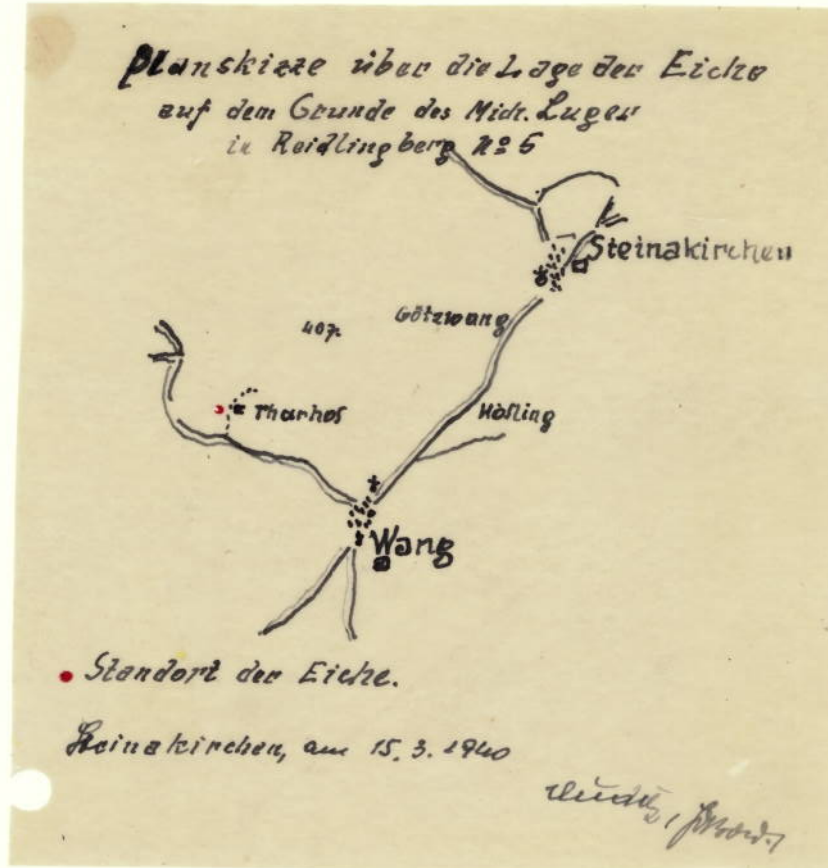 Planskizze über die Lage der Eiche
auf dem Grunde des Mich. Luger
in Reidlingberg No 5
Steinakirchen
Götzwang
407.
Tharhof
Hösling
Wang
Standort der Eiche.
Steinakirchen, am 15.3.1940